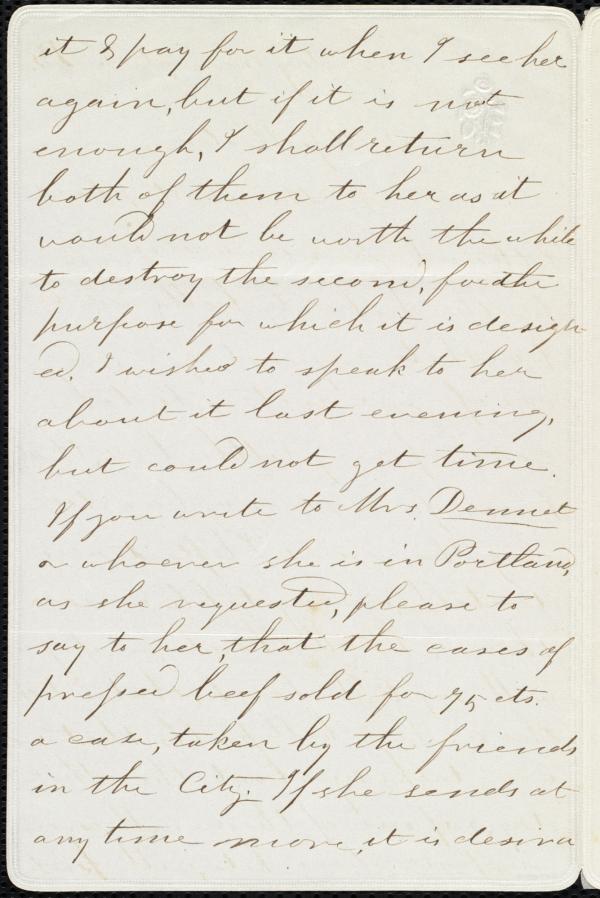 it & pay for it when I see her
again, but if it is not
enough, I shall return
both of them to her as it
would not be worth the while
to destroy the second, for the
purpose for which it is design-
ed. I wished to speak to her
about it last evening,
but could not get time.
If you write to Mrs. Dennet
or whoever she is in Portland,
as she requested, please to
say to her, that the cases of
pressed beef sold for 75 cts.
a case, taken by the friends
in the City. If she sends at
any time more, it is desira